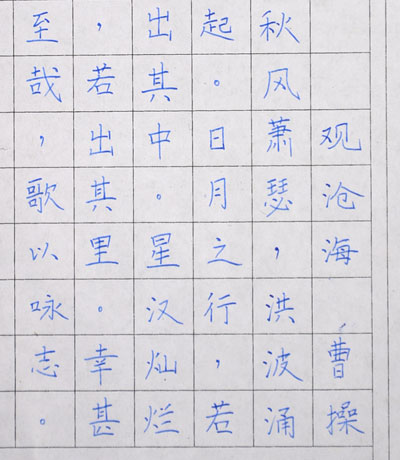 观沧海 曹操
秋风萧瑟，洪波涌
起。日月之行，若
出其中。星汉灿烂
，若出其里。幸甚
至哉，歌以咏志。